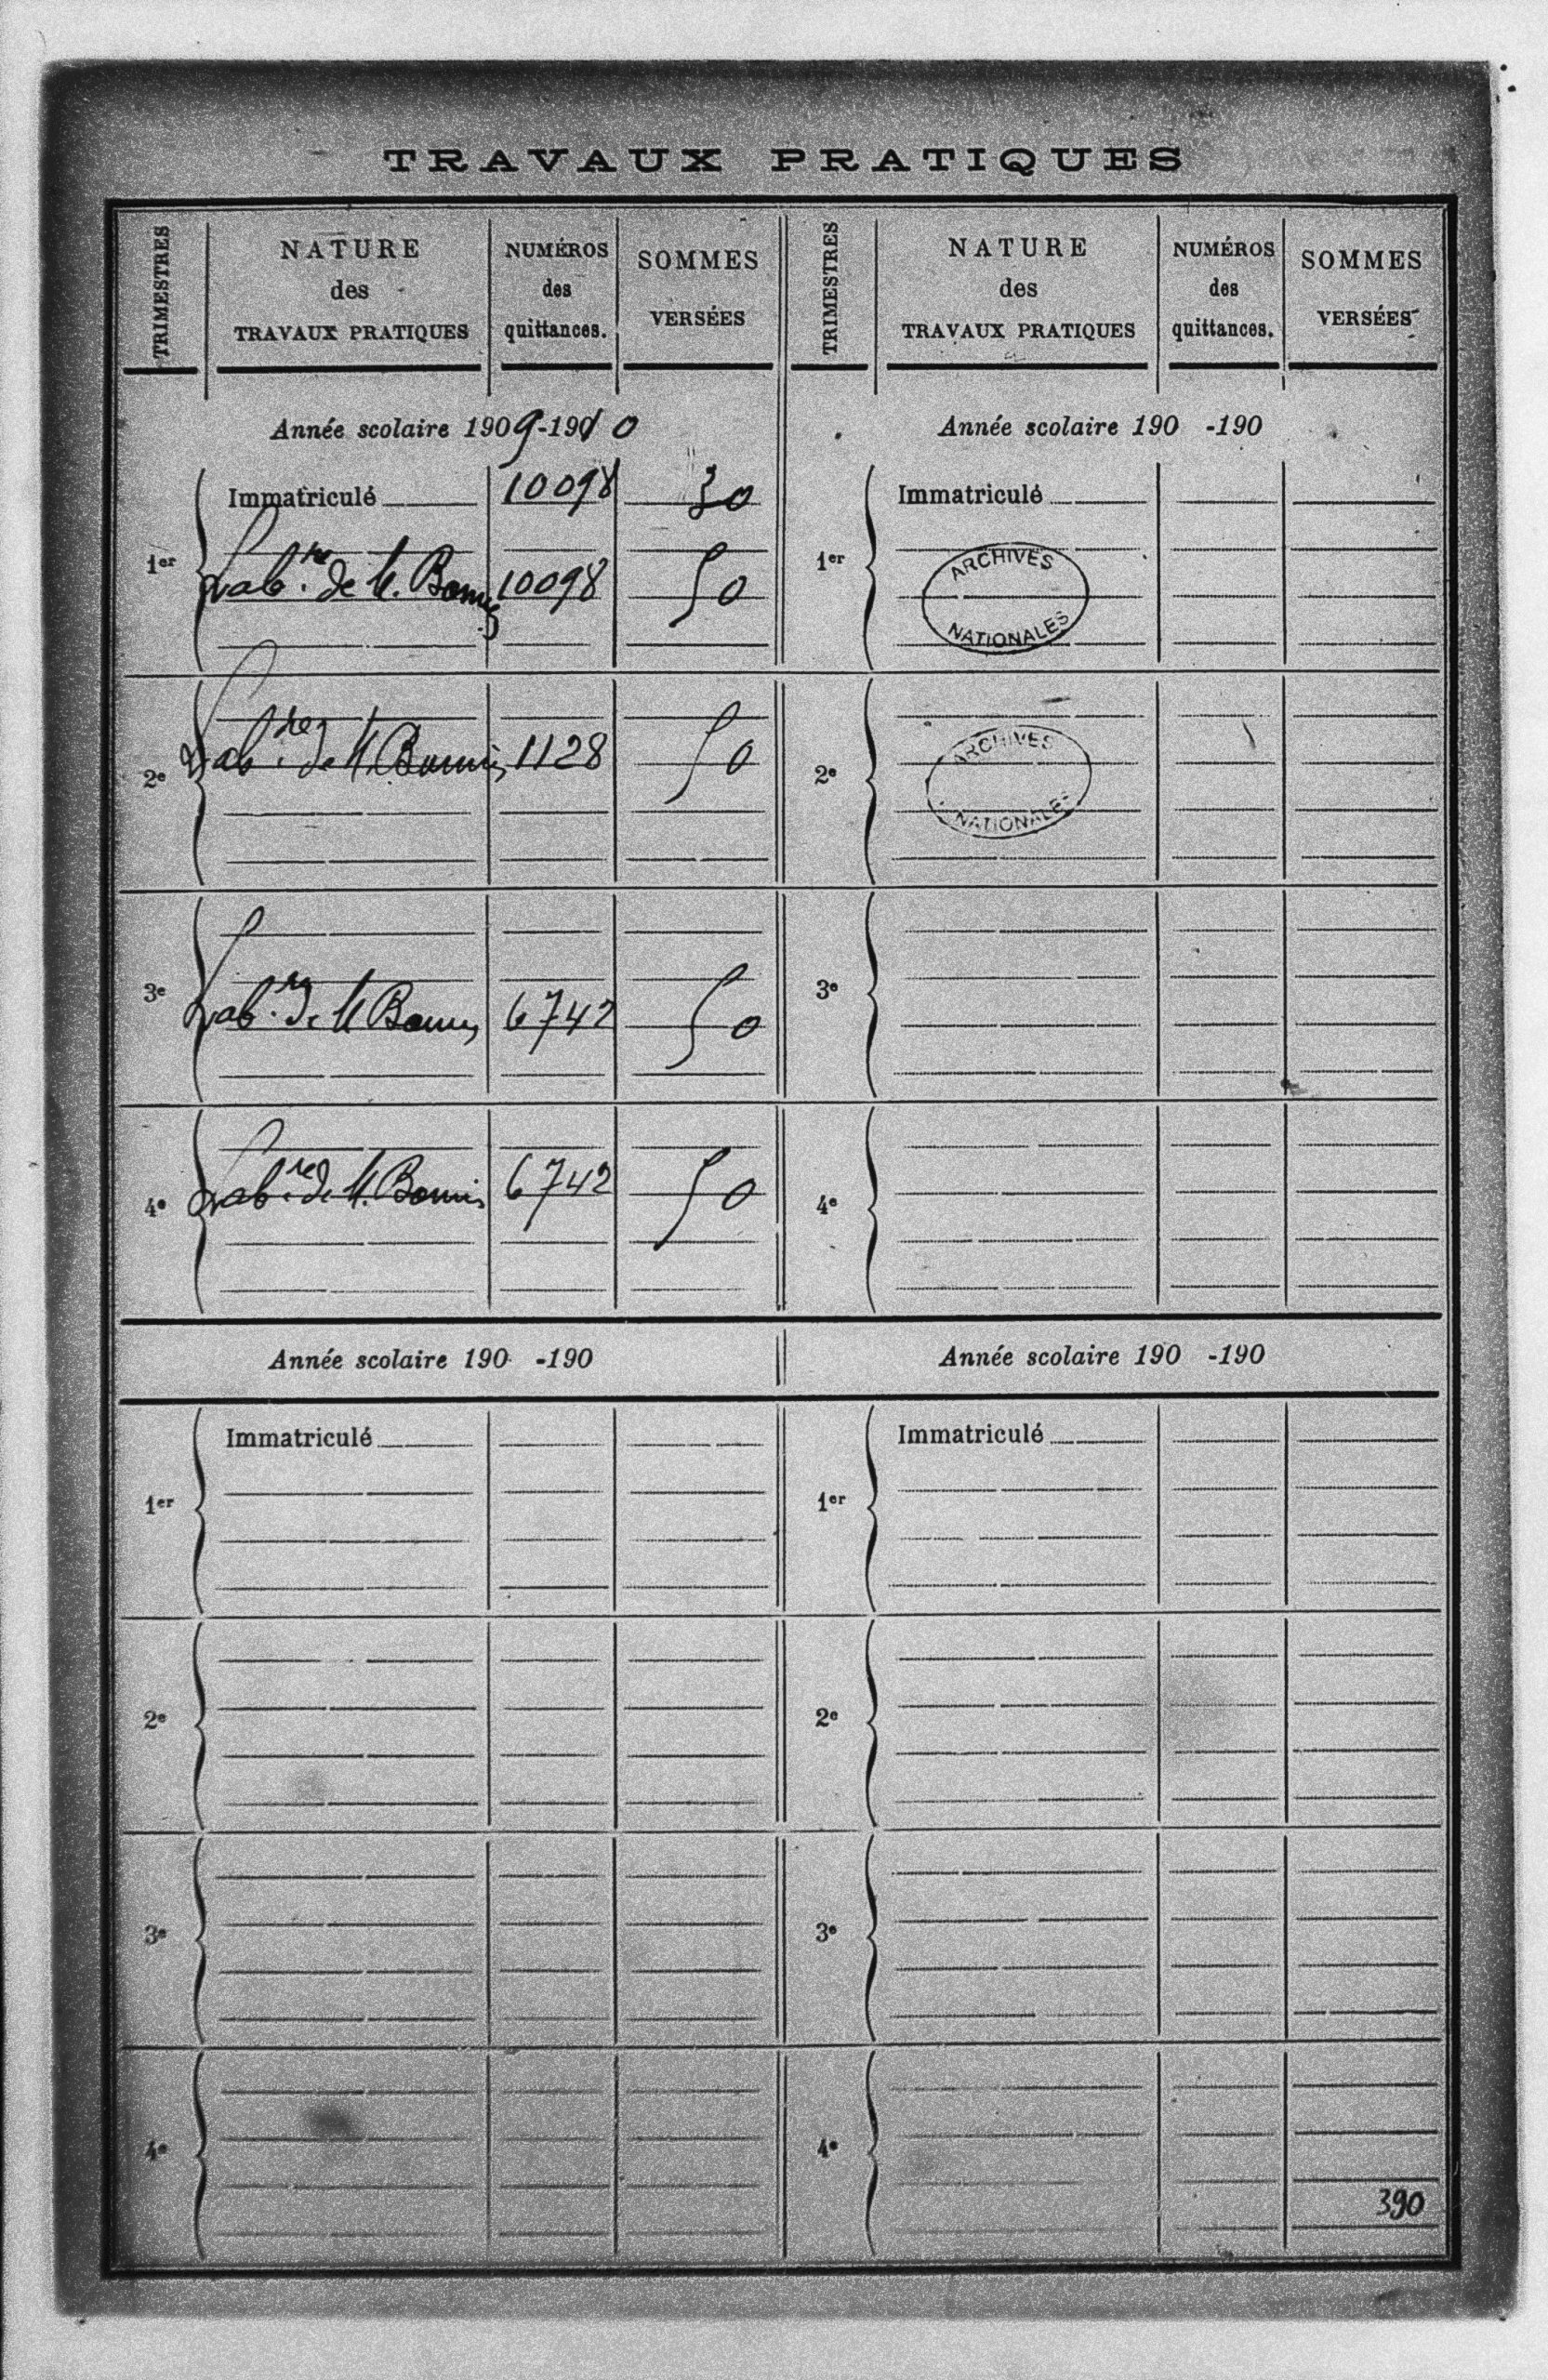 TRAVAUX PRATIQUES
TRIMESTRES
NATURE
des
TRAVAUX PRATIQUES
NUMÉROS
des
quittances.
SOMMES
VERSÉES
TRIMESTRES
NATURE
des
TRAVAUX PRATIQUES
NUMÉROS
des
quittances.
SOMMES
VERSÉES
Année scolaire 1909-1910
1er
Immatriculé 10098 30
Lab.re de M. 10098 50
2e
Lab.re de M. 1128 50
3e
Lab.re de M. 6742 50
4e
Lab.re de M. 6742 50
Année scolaire 190 -190
1er
Immatriculé
ARCHIVES
NATIONALES
2e
ARCHIVES
NATIONALES
3e
4e
Année scolaire 190 -190
1er
Immatriculé
2e
3e
4e
Année scolaire 190 -190
1er
Immatriculé
2e
3e
4e
390